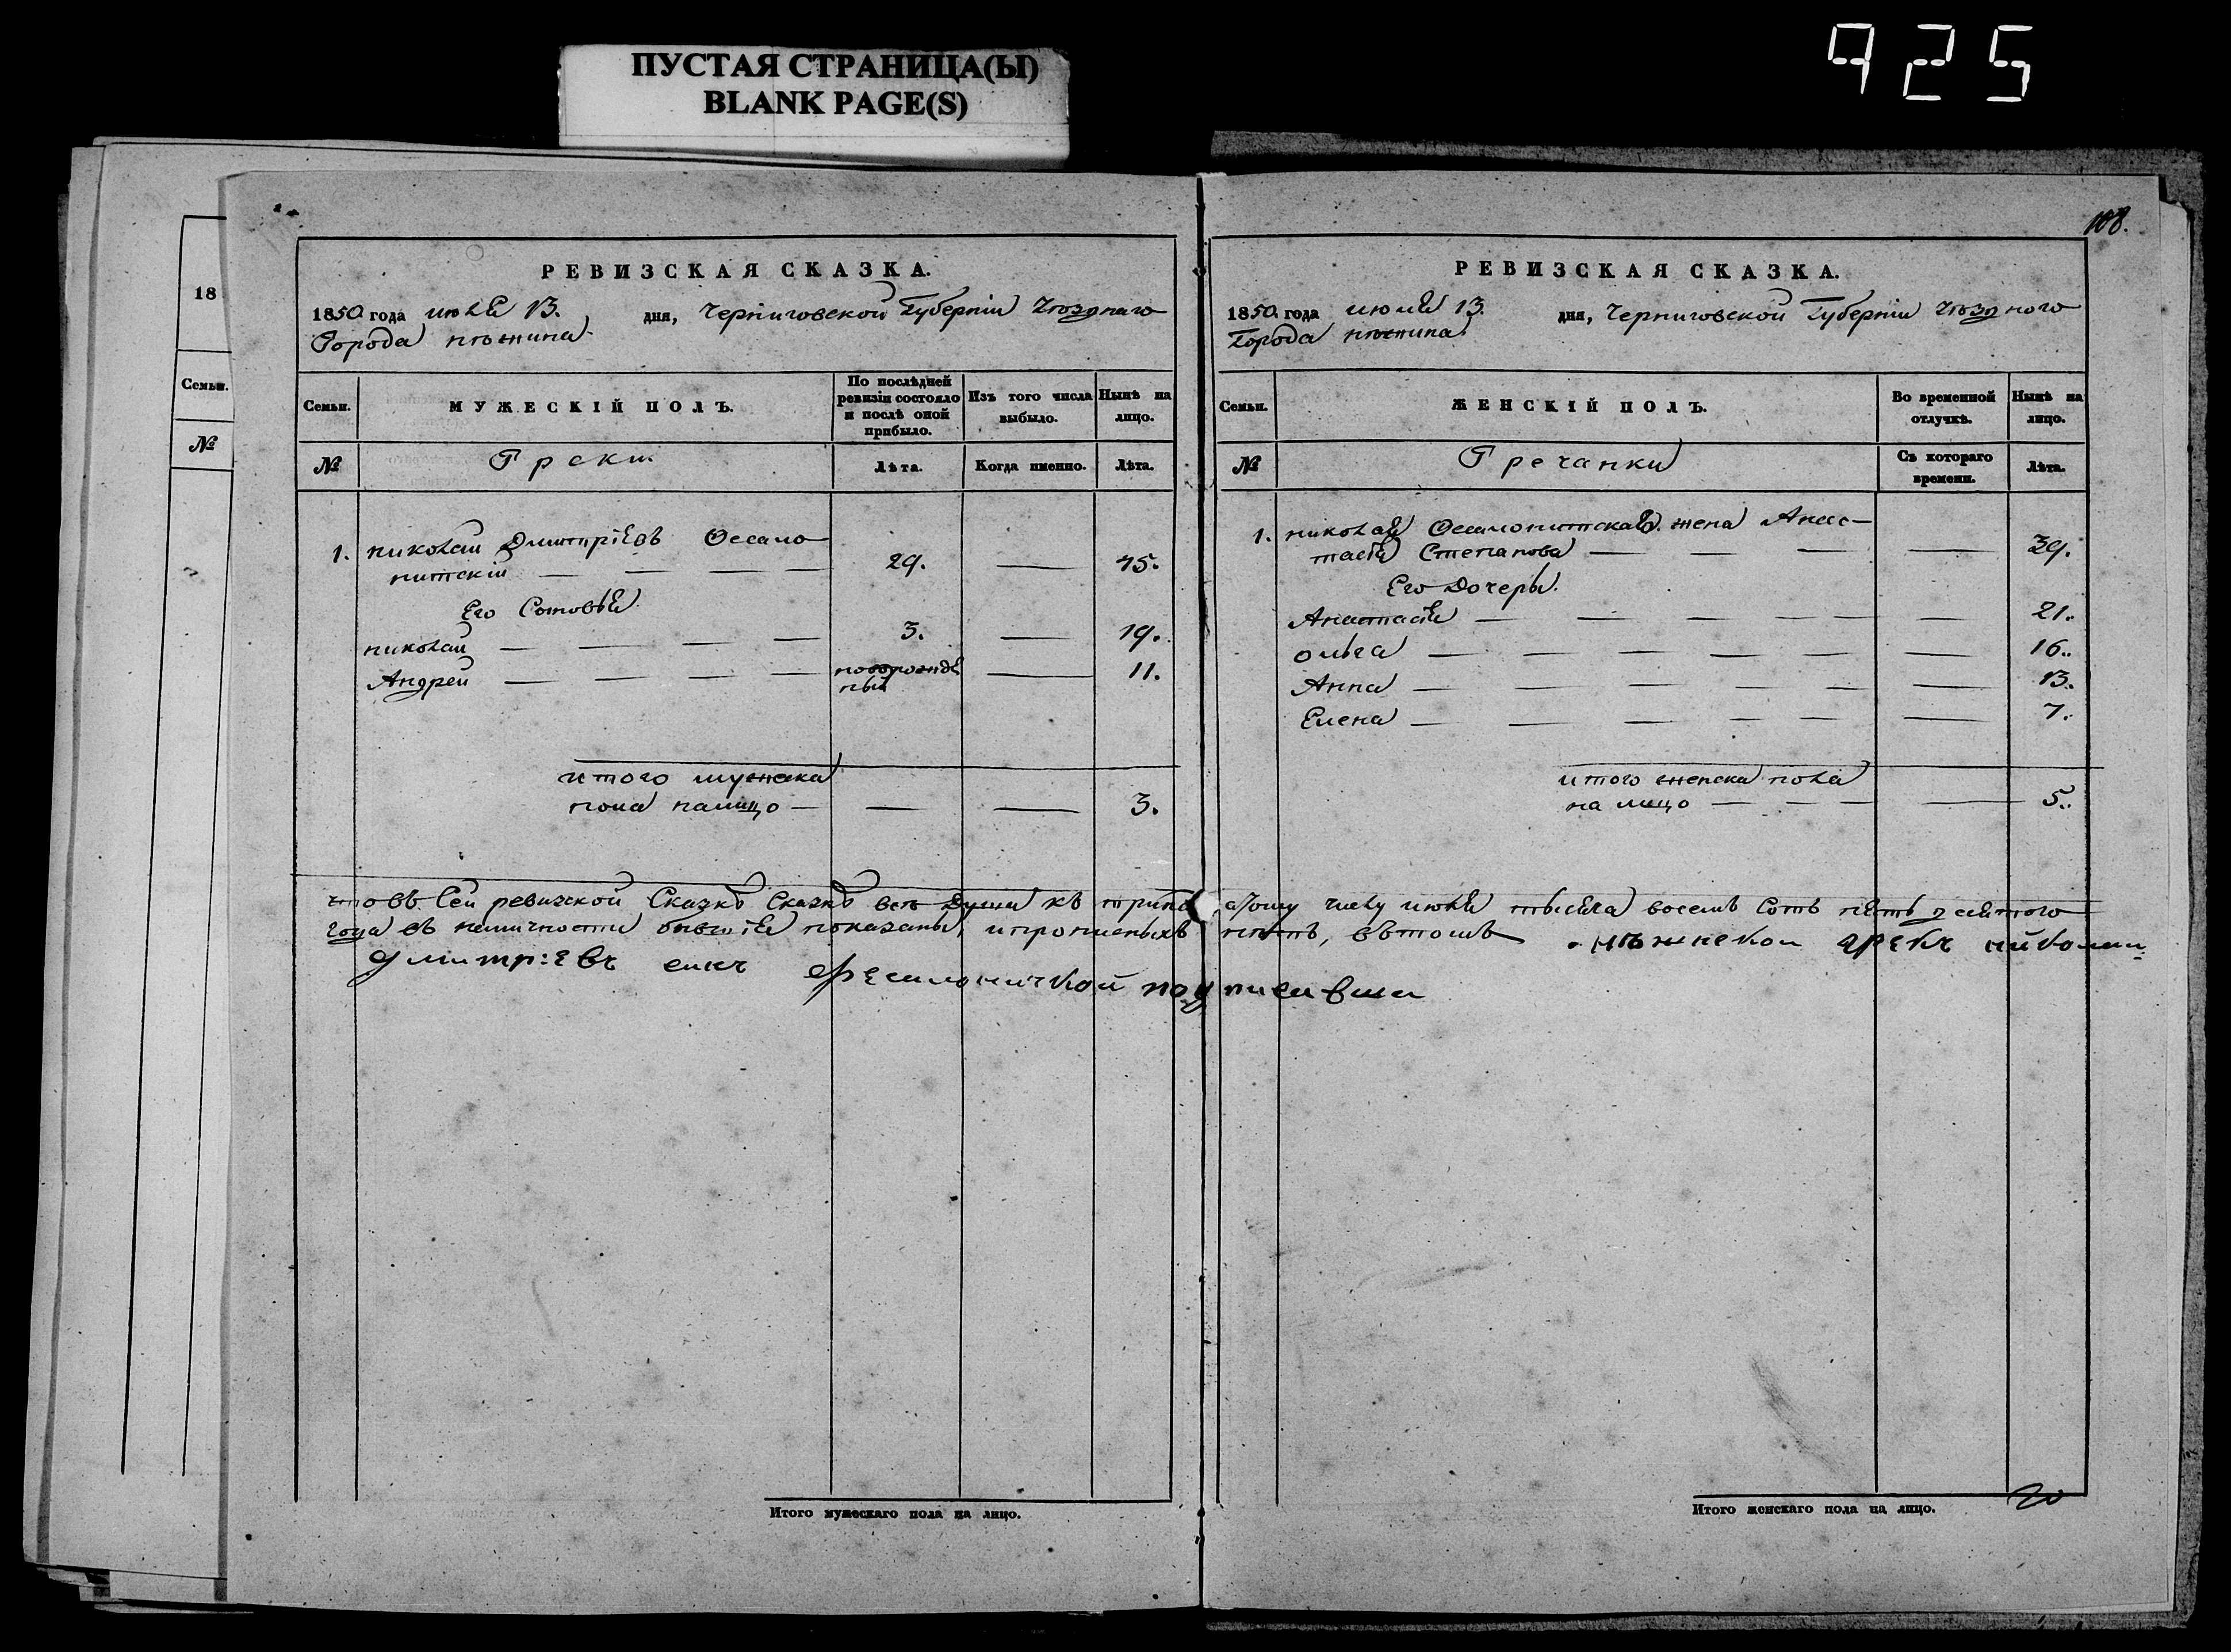 ПУСТАЯ СТРАНИЦА(Ы)
BLANK PAGE(S)
925
18
Семьи.
№
РЕВИЗСКАЯ СКАЗКА.
1850 года июля 13. дня, Черниговской Губерніи Уѣзднаго
Города нѣжина.
Семьи.
МУЖЕСКІЙ ПОЛЪ.
По послѣдней ревизіи состояло и послѣ оной прибыло.
Изъ того числа выбыло.
Нынѣ на лицо.
№
Греки
Лѣта.
Когда именно.
Лѣта.
1. николай Дмитріевъ Фесало
нитскій — — — — 29. — 45.
Его Сыновья
николай — — — 3. — 19.
Андрей — — — — новорожде
ный — 11.
итого мужска
пола налицо — — — 3.
108.
РЕВИЗСКАЯ СКАЗКА.
1850 года июля 13. дня, Черниговской Губерніи Уѣздного
Города нѣжина.
Семьи.
ЖЕНСКІЙ ПОЛЪ.
Во временной отлучкѣ.
Нынѣ на лицо.
№
Гречанки
Съ котораго времени.
Лѣта.
1. николая Фесалонитскаго жена Анас-
тасія Степанова — — — — 39.
Его Дочеры.
Анастасія — — — — — — 21.
ольга — — — — — — 16.
Анна — — — — — — 13.
Елена — — — — — — 7.
итого женска пола
на лицо — — — — 5.
что въ Сей ревизской Сказкѣ Сказкѣ всѣ Души къ трина атому числу июля тысяча восемь Сотъ пять десятого
года въ наличности показаны, и прописныхъ нѣтъ, въ томъ нѣжнской грекъ николаи
дмитр:евъ сынъ фесалоничкой подписался
Итого мужескаго пола на лицо.
Итого женскаго пола на лицо.